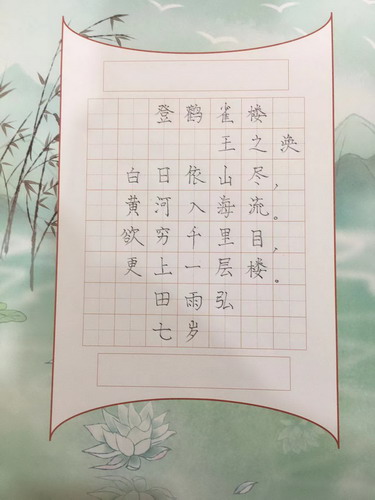 登鹳雀楼
王之涣
白日依山尽，
黄河入海流。
欲穷千里目，
更上一层楼。
田雨弘
七岁